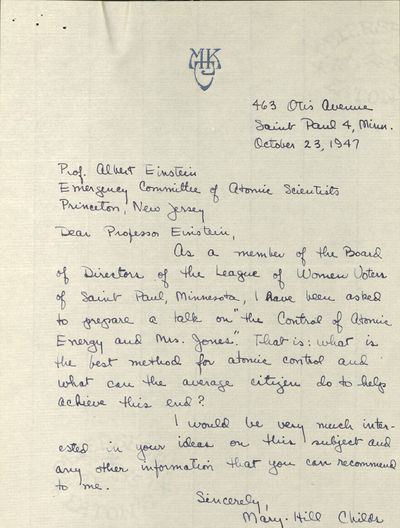 MKC
463 Otis Avenue
Saint Paul 4, Minn.
October 23, 1947
Prof. Albert Einstein
Emergency Committee of Atomic Scientists
Princeton, New Jersey
Dear Professor Einstein,
As a member of the Board
of Directors of the League of Women Voters
of Saint Paul, Minnesota, I have been asked
to prepare a talk on "the Control of Atomic
Energy and Mrs. Jones." That is: what is
the best method for atomic control and
what can the average citizen do to help
achieve this end?
I would be very much inter-
ested in your ideas on this subject and
any other information that you can recommend
to me.
Sincerely,
Mary-Hill Childs